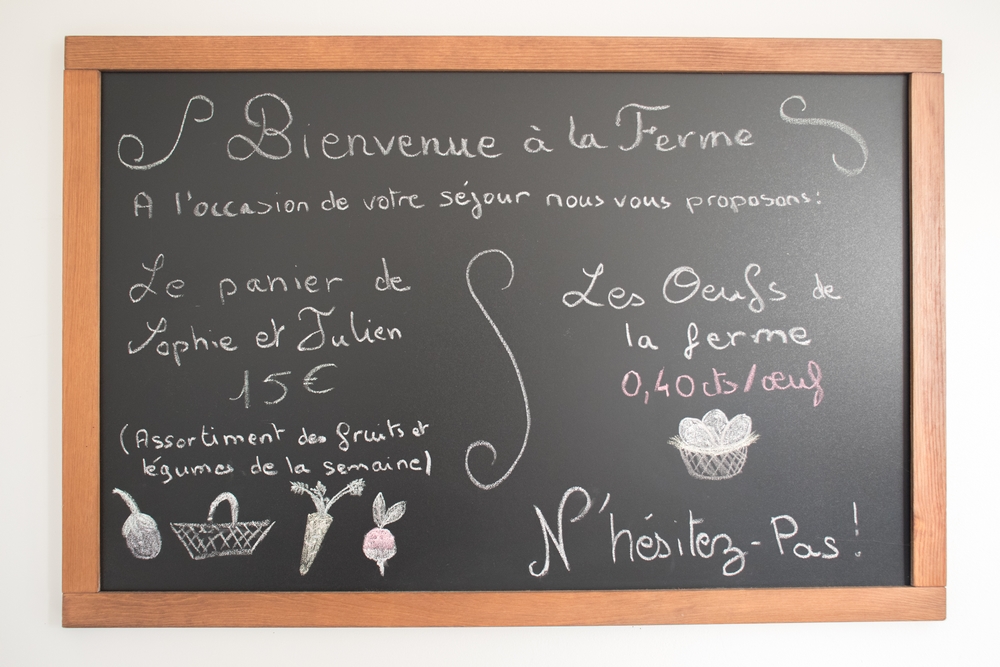 Bienvenue à la Ferme
A l'occasion de votre séjour nous vous proposons:
Le panier de
Sophie et Julien
15€
(Assortiment des fruits et
légumes de la semaine)
Les Oeufs de
la ferme
0,40cts/œuf
N'hésitez-Pas!